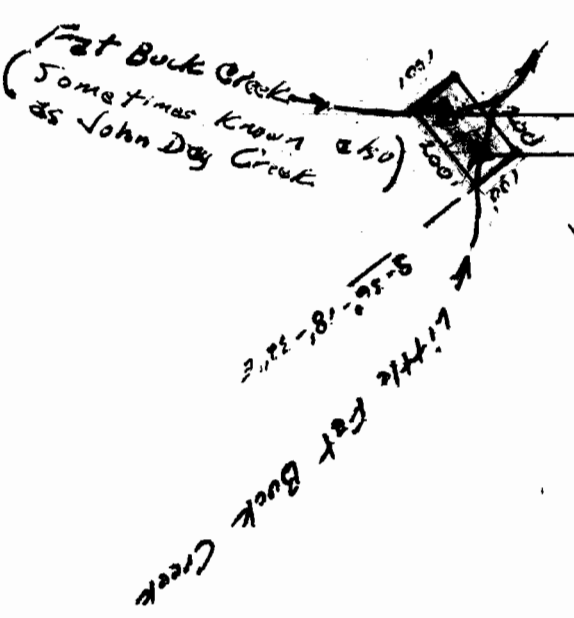 Fat Buck Creek
(Sometimes known also
as John Day Creek)
100'
200'
200'
100'
Little Fat Buck Creek